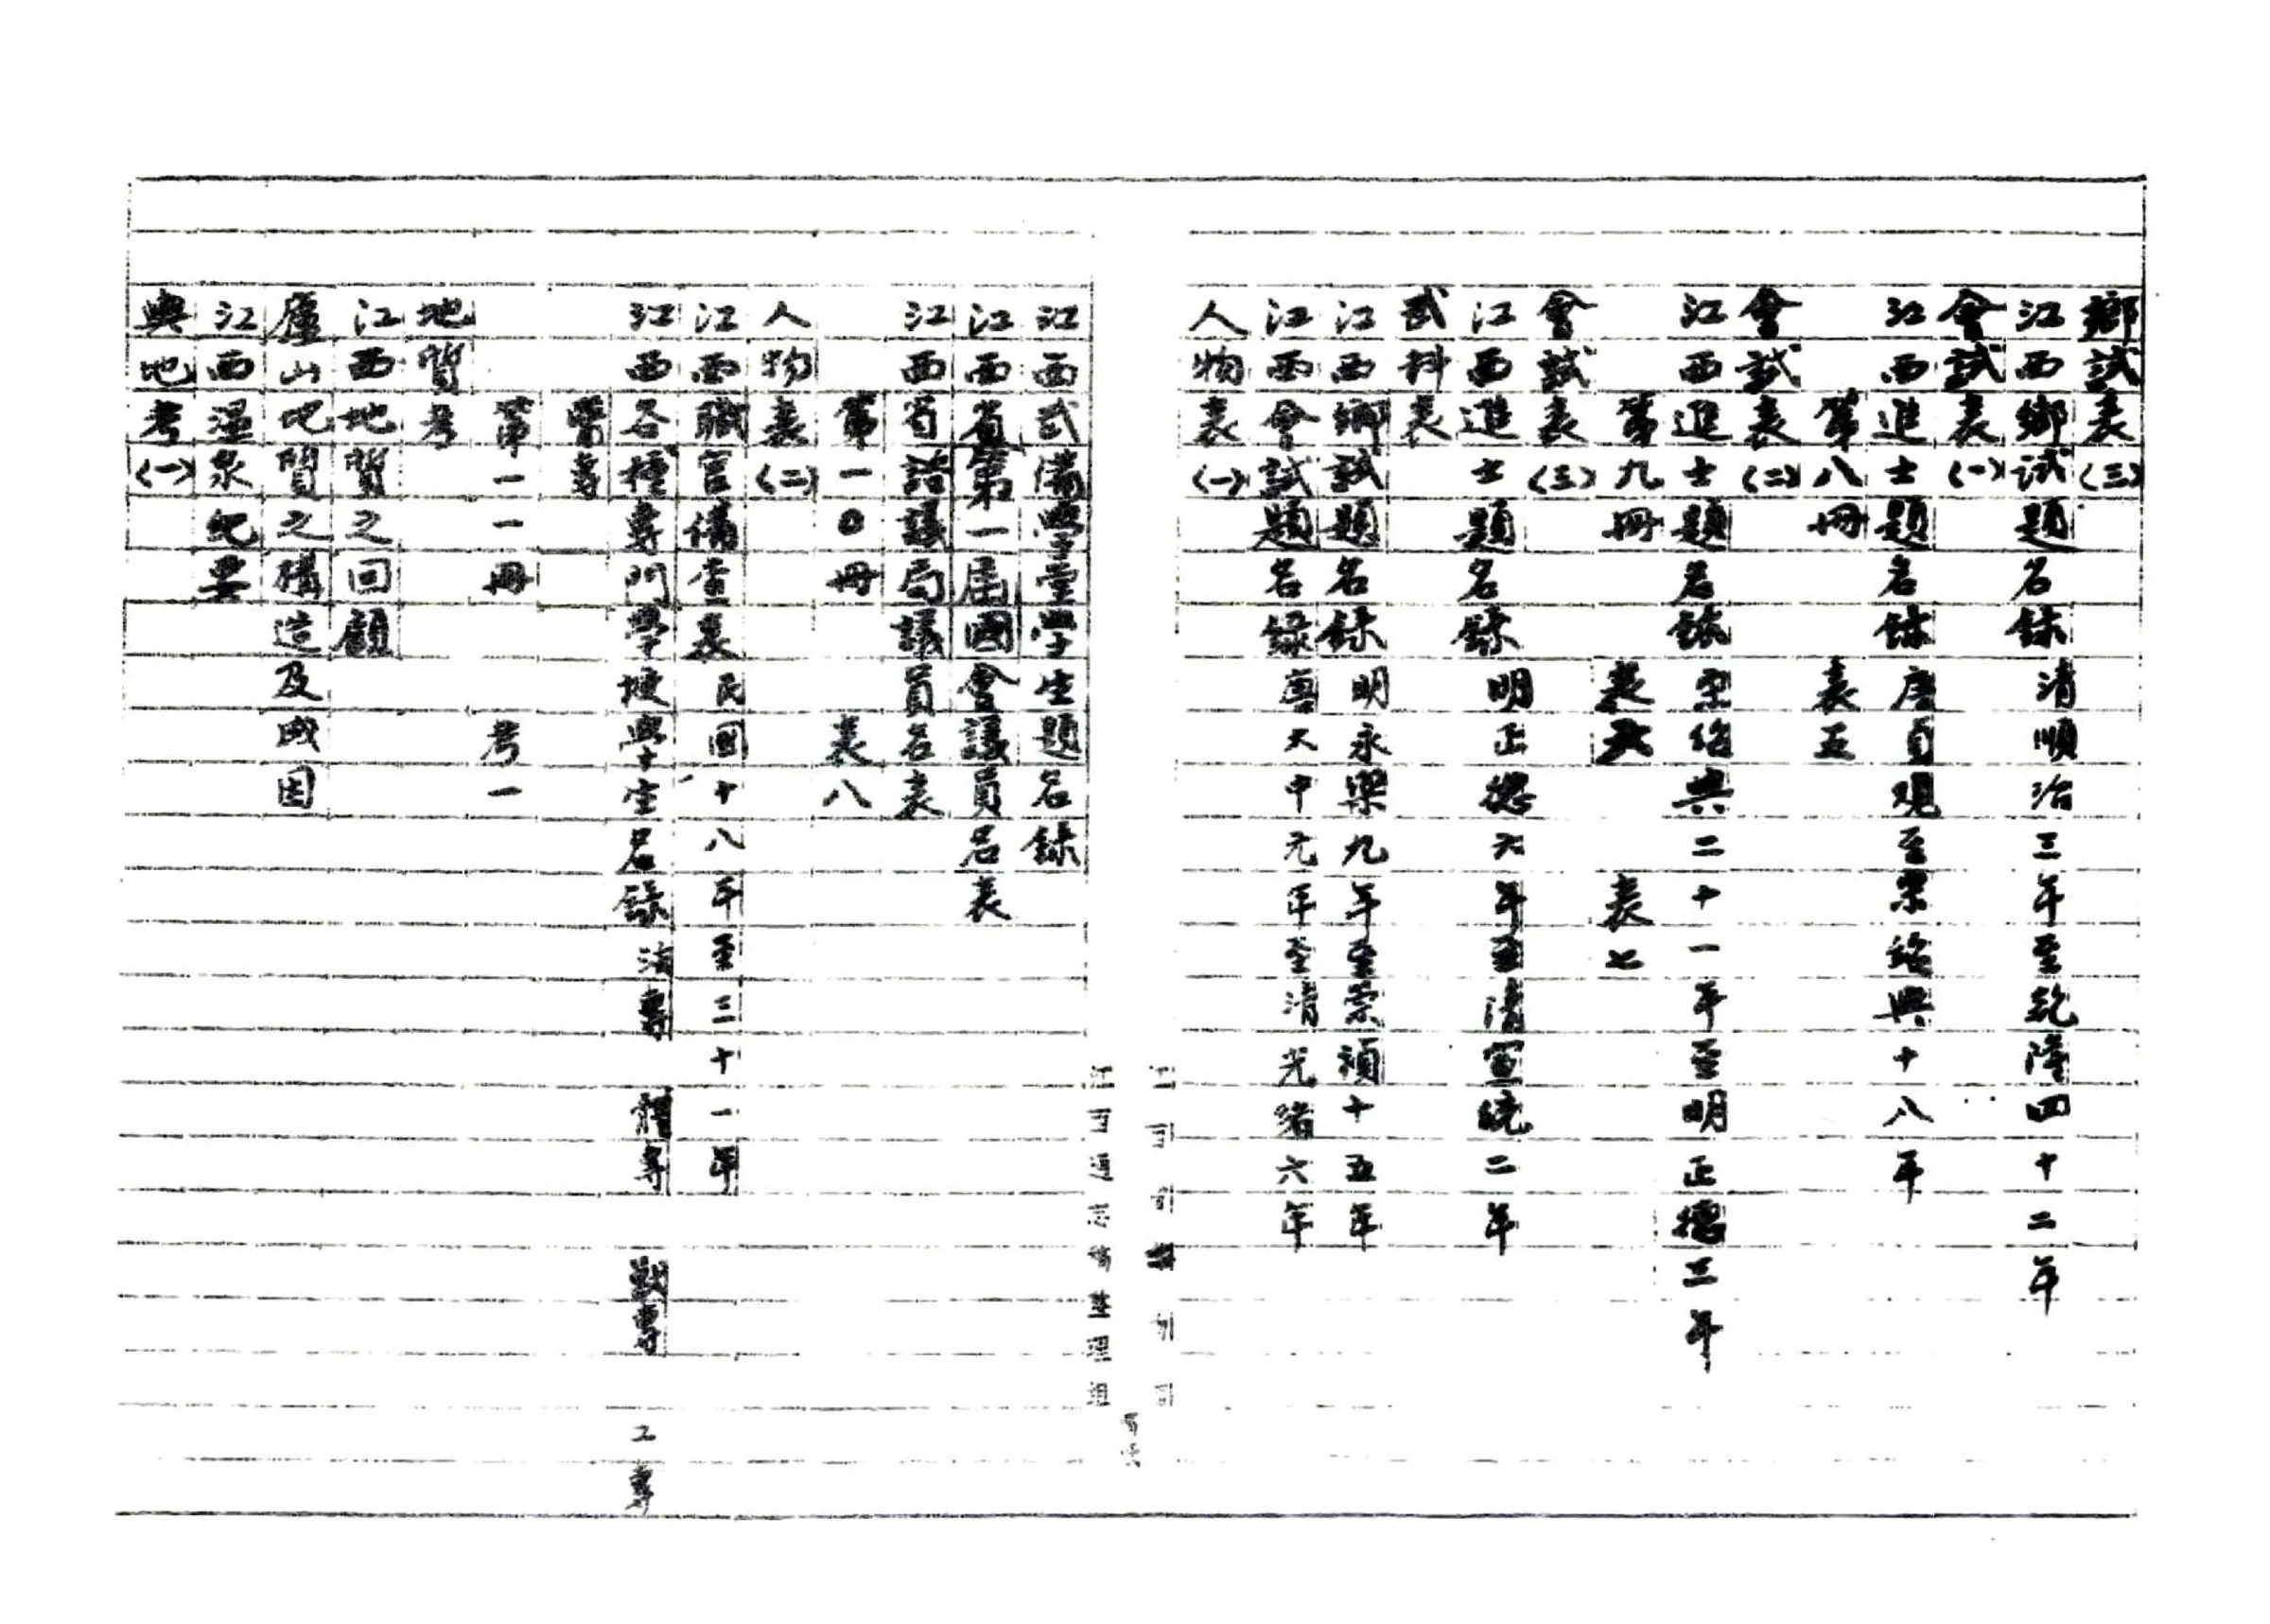 鄉試表(三)
江西鄉試題名錄 清順治三年至乾隆四十二年
會試表(一)
江西進士題名錄 唐貞觀至宋紹興十八年
第八冊 表五
會試表(二)
江西進士題名錄 宋紹興二十一年至明正德三年
第九冊 表六 表七
會試表(三)
江西進士題名錄 明正德六年至清宣統二年
武科表
江西鄉試題名錄 明永樂九年至崇禎十五年
江西會試題名錄 唐大中元年至清光緒六年
人物表(一)
江西武備學堂學生題名錄
江西省第一屆國會議員名表
江西省諮議局議員名表
第一〇冊 表八
人物表(二)
江西職官備查表 民國十八年至三十一年
江西各種專門學校學生名錄 法專 體專 獸專 工專
醫專
第一一冊 考一
地質考
江西地質之回顧
廬山地質之構造及成因
江西溫泉紀要
輿地考(一)